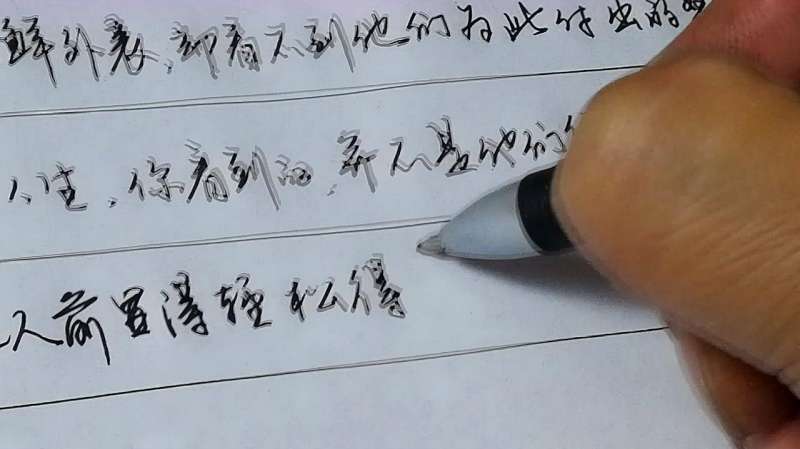 鲜外表,却看不到他们为此付出的
人生,你看到的,并不是他们
人前显得轻松得